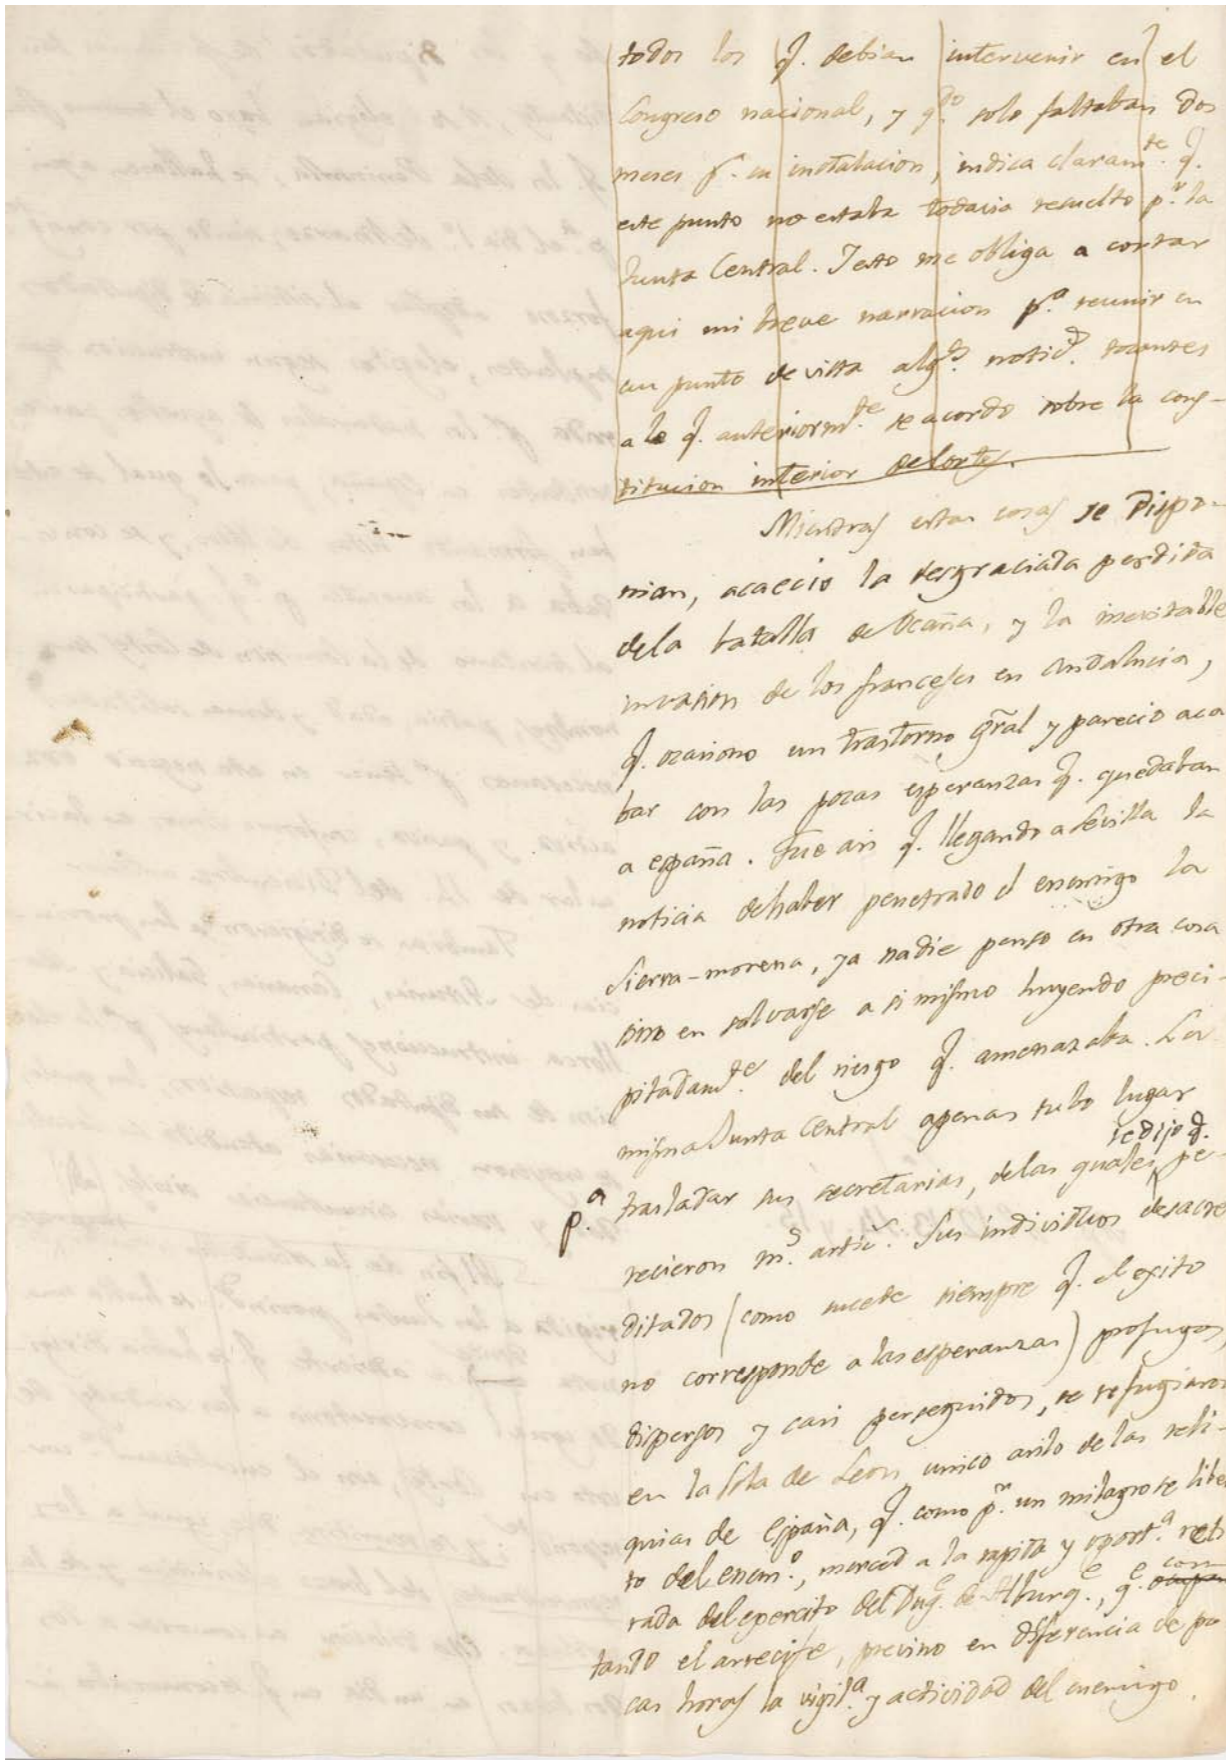 todos los q. debian intervenir en el
Congreso nacional, y q.do solo faltaban dos
meses p.a su instalacion, indica claram.te q.
este punto no estaba todavia resuelto p.r la
Junta Central. Y esto me obliga a cortar
aqui mi breve narracion p.a reunir en
un punto de vista alg.s notic.s tocantes
a lo q. anteriorm.te se acordo sobre la cons-
titucion interior de Cortes.
Mientras estas cosas se dispo-
nian, acaecio la desgraciada perdida
dela batalla de Ocaña, y la inevitable
invasion de los franceses en Andalucia,
q. ocasiono un trastorno gral y parecio aca
bar con las pocas esperanzas q. quedaban
a españa. Fue asi q. llegando a Sevilla la
noticia de haber penetrado el enemigo la
Sierra-morena, ya nadie penso en otra cosa
sino en salvarse a si mismo huyendo preci-
pitadam.te del riesgo q. amenazaba. La
misma Junta Central apenas tubo lugar
se dijo q.
p.a trasladar sus secretarias, delas quales pe-
recieron m.s artic.s Sus individuos desacre
ditados (como sucede siempre q. el exito
no corresponde a las esperanzas) profugos,
dispersos y casi perseguidos, se refugiaron
en la Isla de Leon, unico asilo de las reli-
quias de España, q. como p.r un milagro se liber
to del enem.o, merced a la rapida y oport.a reti
rada del exercito del Duq.e de Alburq.e, q.e cor
tando el arrecife, previno en diferencia de po
cas horas la vigil.a y actividad del enemigo.